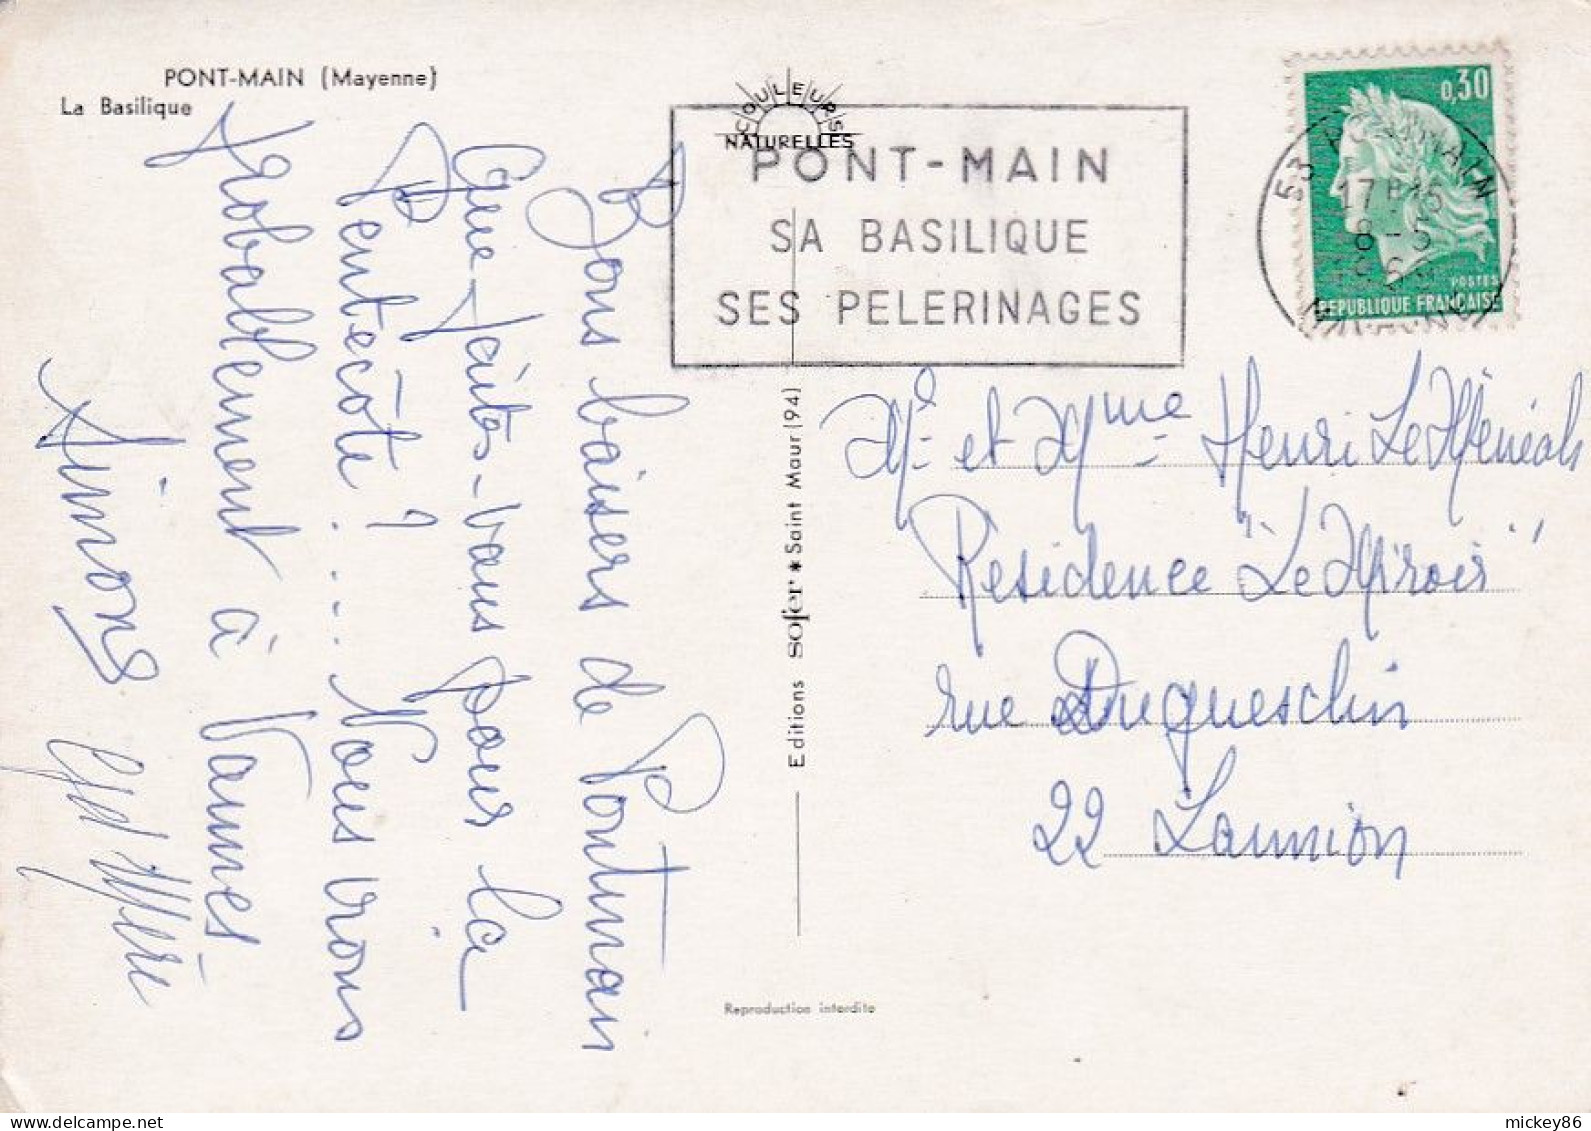 PONT-MAIN (Mayenne)
La Basilique
Bons baisers de Pontmain
Que faites-vous pour la
Pentecôte ? .... Nous irons
probablement à Vannes
Simone
COULEURS
NATURELLES
PONT-MAIN
SA BASILIQUE
SES PELERINAGES
0,30
POSTES
REPUBLIQUE FRANÇAISE
53
17 H 15
8 - 5
Editions sofer * Saint Maur (94)
Mr et Mme Henri
Residence "Le Miroir"
rue Duguesclin
22 Lannion
Reproduction interdite
mickey86